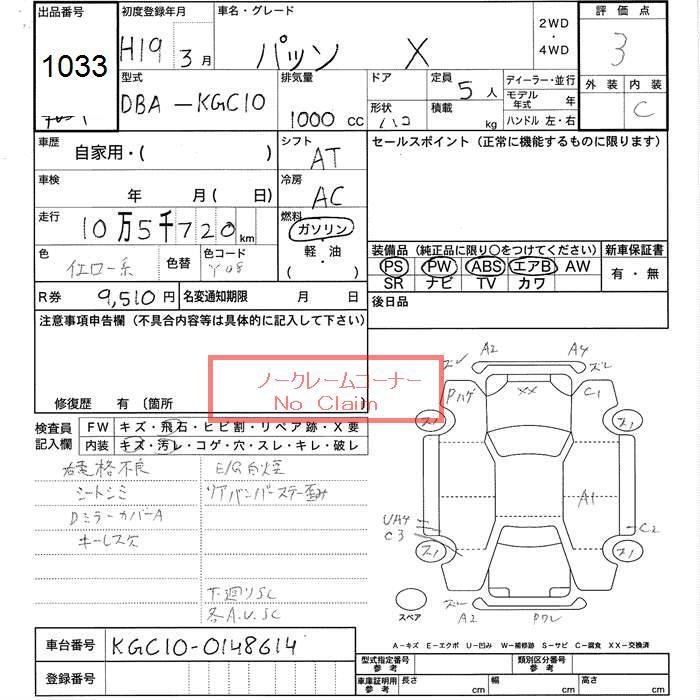 出品番号
1033
初度登録年月
H19 3月
車名・グレード
パッソ X
2WD
・
4WD
評価点
3
外装 内装
C
型式
DBA-KGC10
排気量
1000 cc
ドア
形状
ハコ
定員
5人
積載
kg
ディーラー・並行
モデル年式 年
ハンドル 左・右
車歴
自家用・( )
シフト
AT
セールスポイント(正常に機能するものに限ります)
車検
年 月( 日)
冷房
AC
走行
10万5千720km
燃料
ガソリン
軽・油
( )
色
イエロー系
色替
色コード
Y08
装備品(純正品に限り○をつけてください)
PS PW ABS エアB AW
SR ナビ TV カワ
新車保証書
有・無
R券
9,510円
名変通知期限 月 日
後日品
注意事項申告欄(不具合内容等は具体的に記入して下さい)
ノークレームコーナー
No Claim
修復歴 有(箇所 )
検査員記入欄
FW キズ・飛石・ヒビ割・リペア跡・X要
内装 キズ・汚レ・コゲ・穴・スレ・キレ・破レ
シートシミ
DミラーカバーA
キーレス欠
E/G白煙
リアバンパーステー歪み
下廻りSC
各A.U.SC
ズレ A2 A4 ズレ
Pハゲ XX C1
ス1 ス1
A1
UA4
C3
C2
ス1 ス1
スペア
ズレ
A2
Pワレ
車台番号
KGC10-0148614
登録番号
A-キズ E-エクボ U-凹み W-補修跡 S-サビ C-腐食 XX-交換済
型式指定番号
参考
類別区分番号
参考
車庫証明用
参考
長さ cm 幅 cm 高さ cm